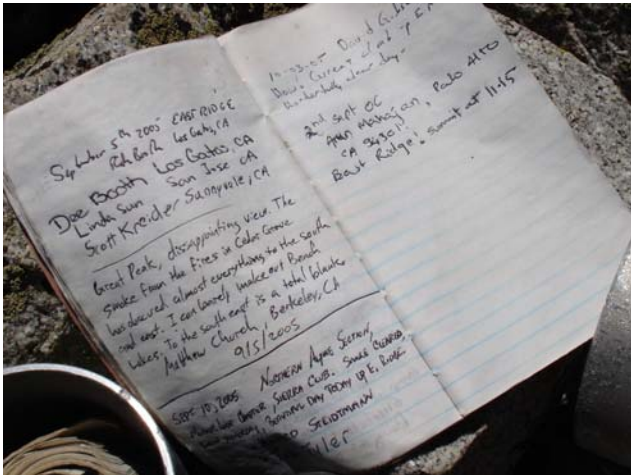 September 5th 2005 EAST RIDGE
Rich Booth Los Gatos, CA
Dee Booth Los Gatos, CA
Linda Sun San Jose CA
Scott Kreider Sunnyvale, CA
Great Peak, disappointing view. The
smoke from the fires in Cedar Grove
has obscured almost everything to the south
and east. I can barely make out Bench
Lakes. To the south east is a total blank.
Matthew Church, Berkeley, CA
9/5/2005
SEPT 10, 2005 NORTHERN ALPINE SECTION,
CHAPTER, SIERRA CLUB. SMOKE CLEARED,
BEAUTIFUL DAY TODAY UP E. RIDGE.
STEIDTMANN
yler
10-03-05 David
Down Current
Wonderfully clear day.
2nd sept 05
Palo Alto
CA 94301.
East Ridge: summit at 11:15